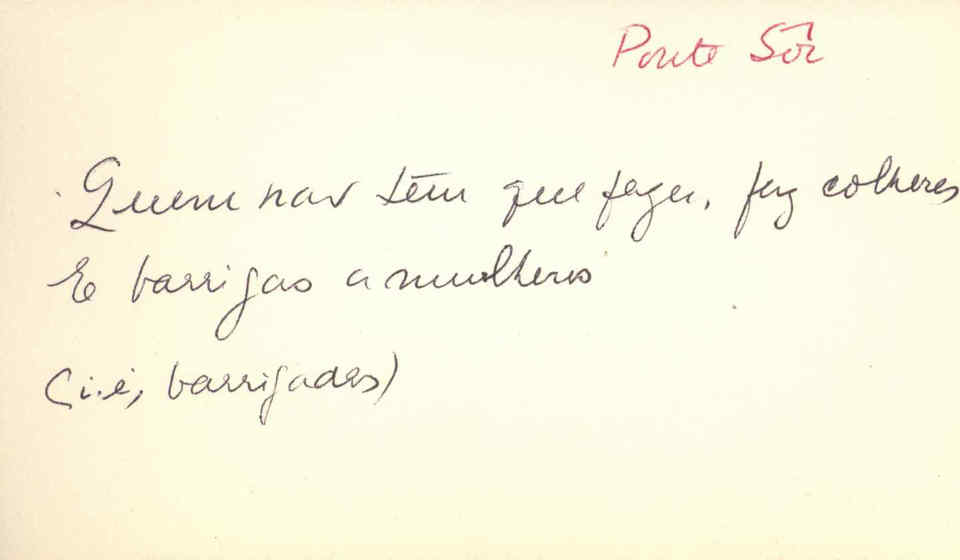 Ponte Sôr
Quem não tem que fazer, faz colheres
E barrigas a mulheres
(i.é, barrigadas)